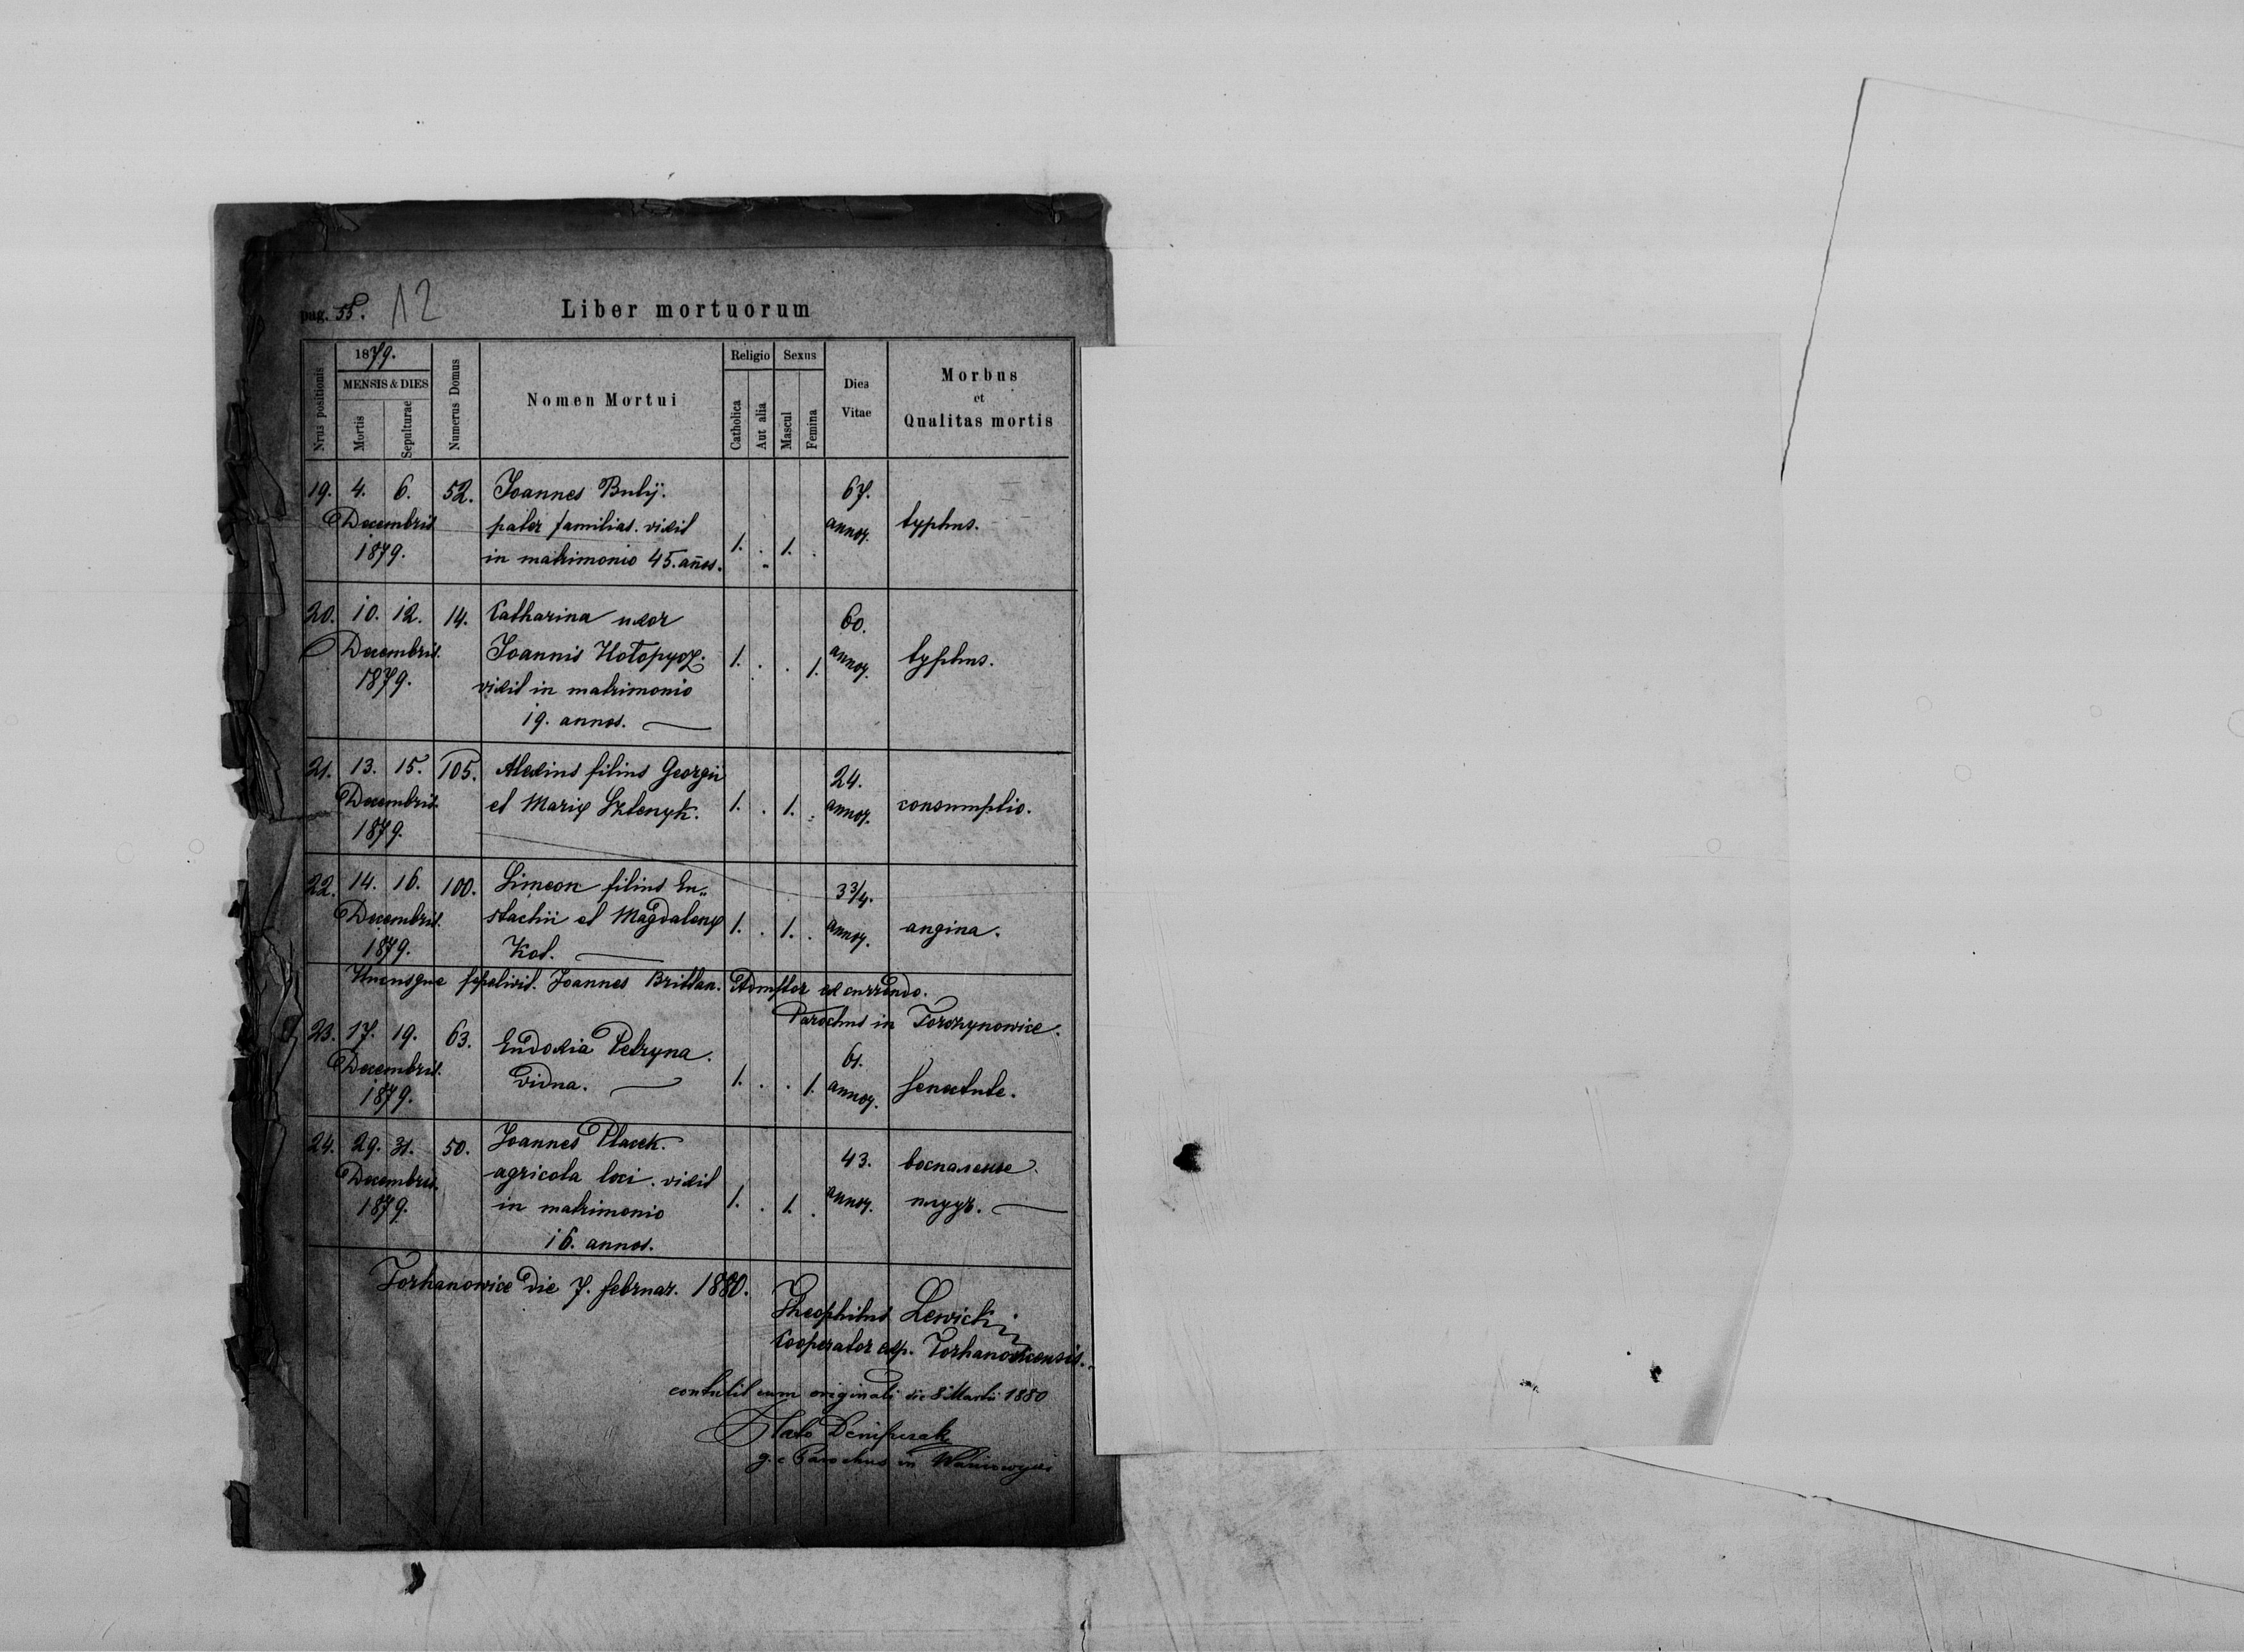 pag. 58. 12
Liber mortuorum
1879.
Nrus positionis
MENSIS & DIES
Mortis
Sepulturae
Numerus Domus
Nomen Mortui
Religio
Catholica
Aut alia
Sexus
Mascul
Femina
Dies
Vitae
Morbus
et
Qualitas mortis
19. 4. 6. 52. Joannes Bulÿ. 67.
Decembris pater familias. vixit annor. typhus.
1879. in matrimonio 45. años. 1. . 1. .
20. 10. 12. 14. Catharina uxor 60.
Decembris. Joannis 1. . . 1. annor. typhus.
1879. vixit in matrimonio
19. annos.
21. 13. 15. 105. Alexius filius Georgii 24.
Decembris. et Marię Sztenyk. 1. . 1. . annor. consumptio.
1879.
22. 14. 16. 100. Simeon filius Eu„ 3 3/4.
Decembris. stachii et Magdalenę 1. . 1. . annor. angina.
1879. Kot.
Hucusque sepelivit. Joannes Brittan. Admstor excurrendo.
Parochus in Torczynowice.
23. 17. 19. 63. Eudoxia Petryna. 61.
Decembris. vidua. 1. . . 1. annor. senectute.
1879.
24. 29. 31. 50. Joannes Placek. 43. воспаленіе
Decembris. agricola loci. vixit annor.
1879. in matrimonio 1. . 1. .
16. annos.
Torhanowice die 7. februar. 1880.
Theophilus Lewicki
Cooperator exp. Torhanovicensis.
contulit cum originali die 8 Martii 1880
g. c Parochus in